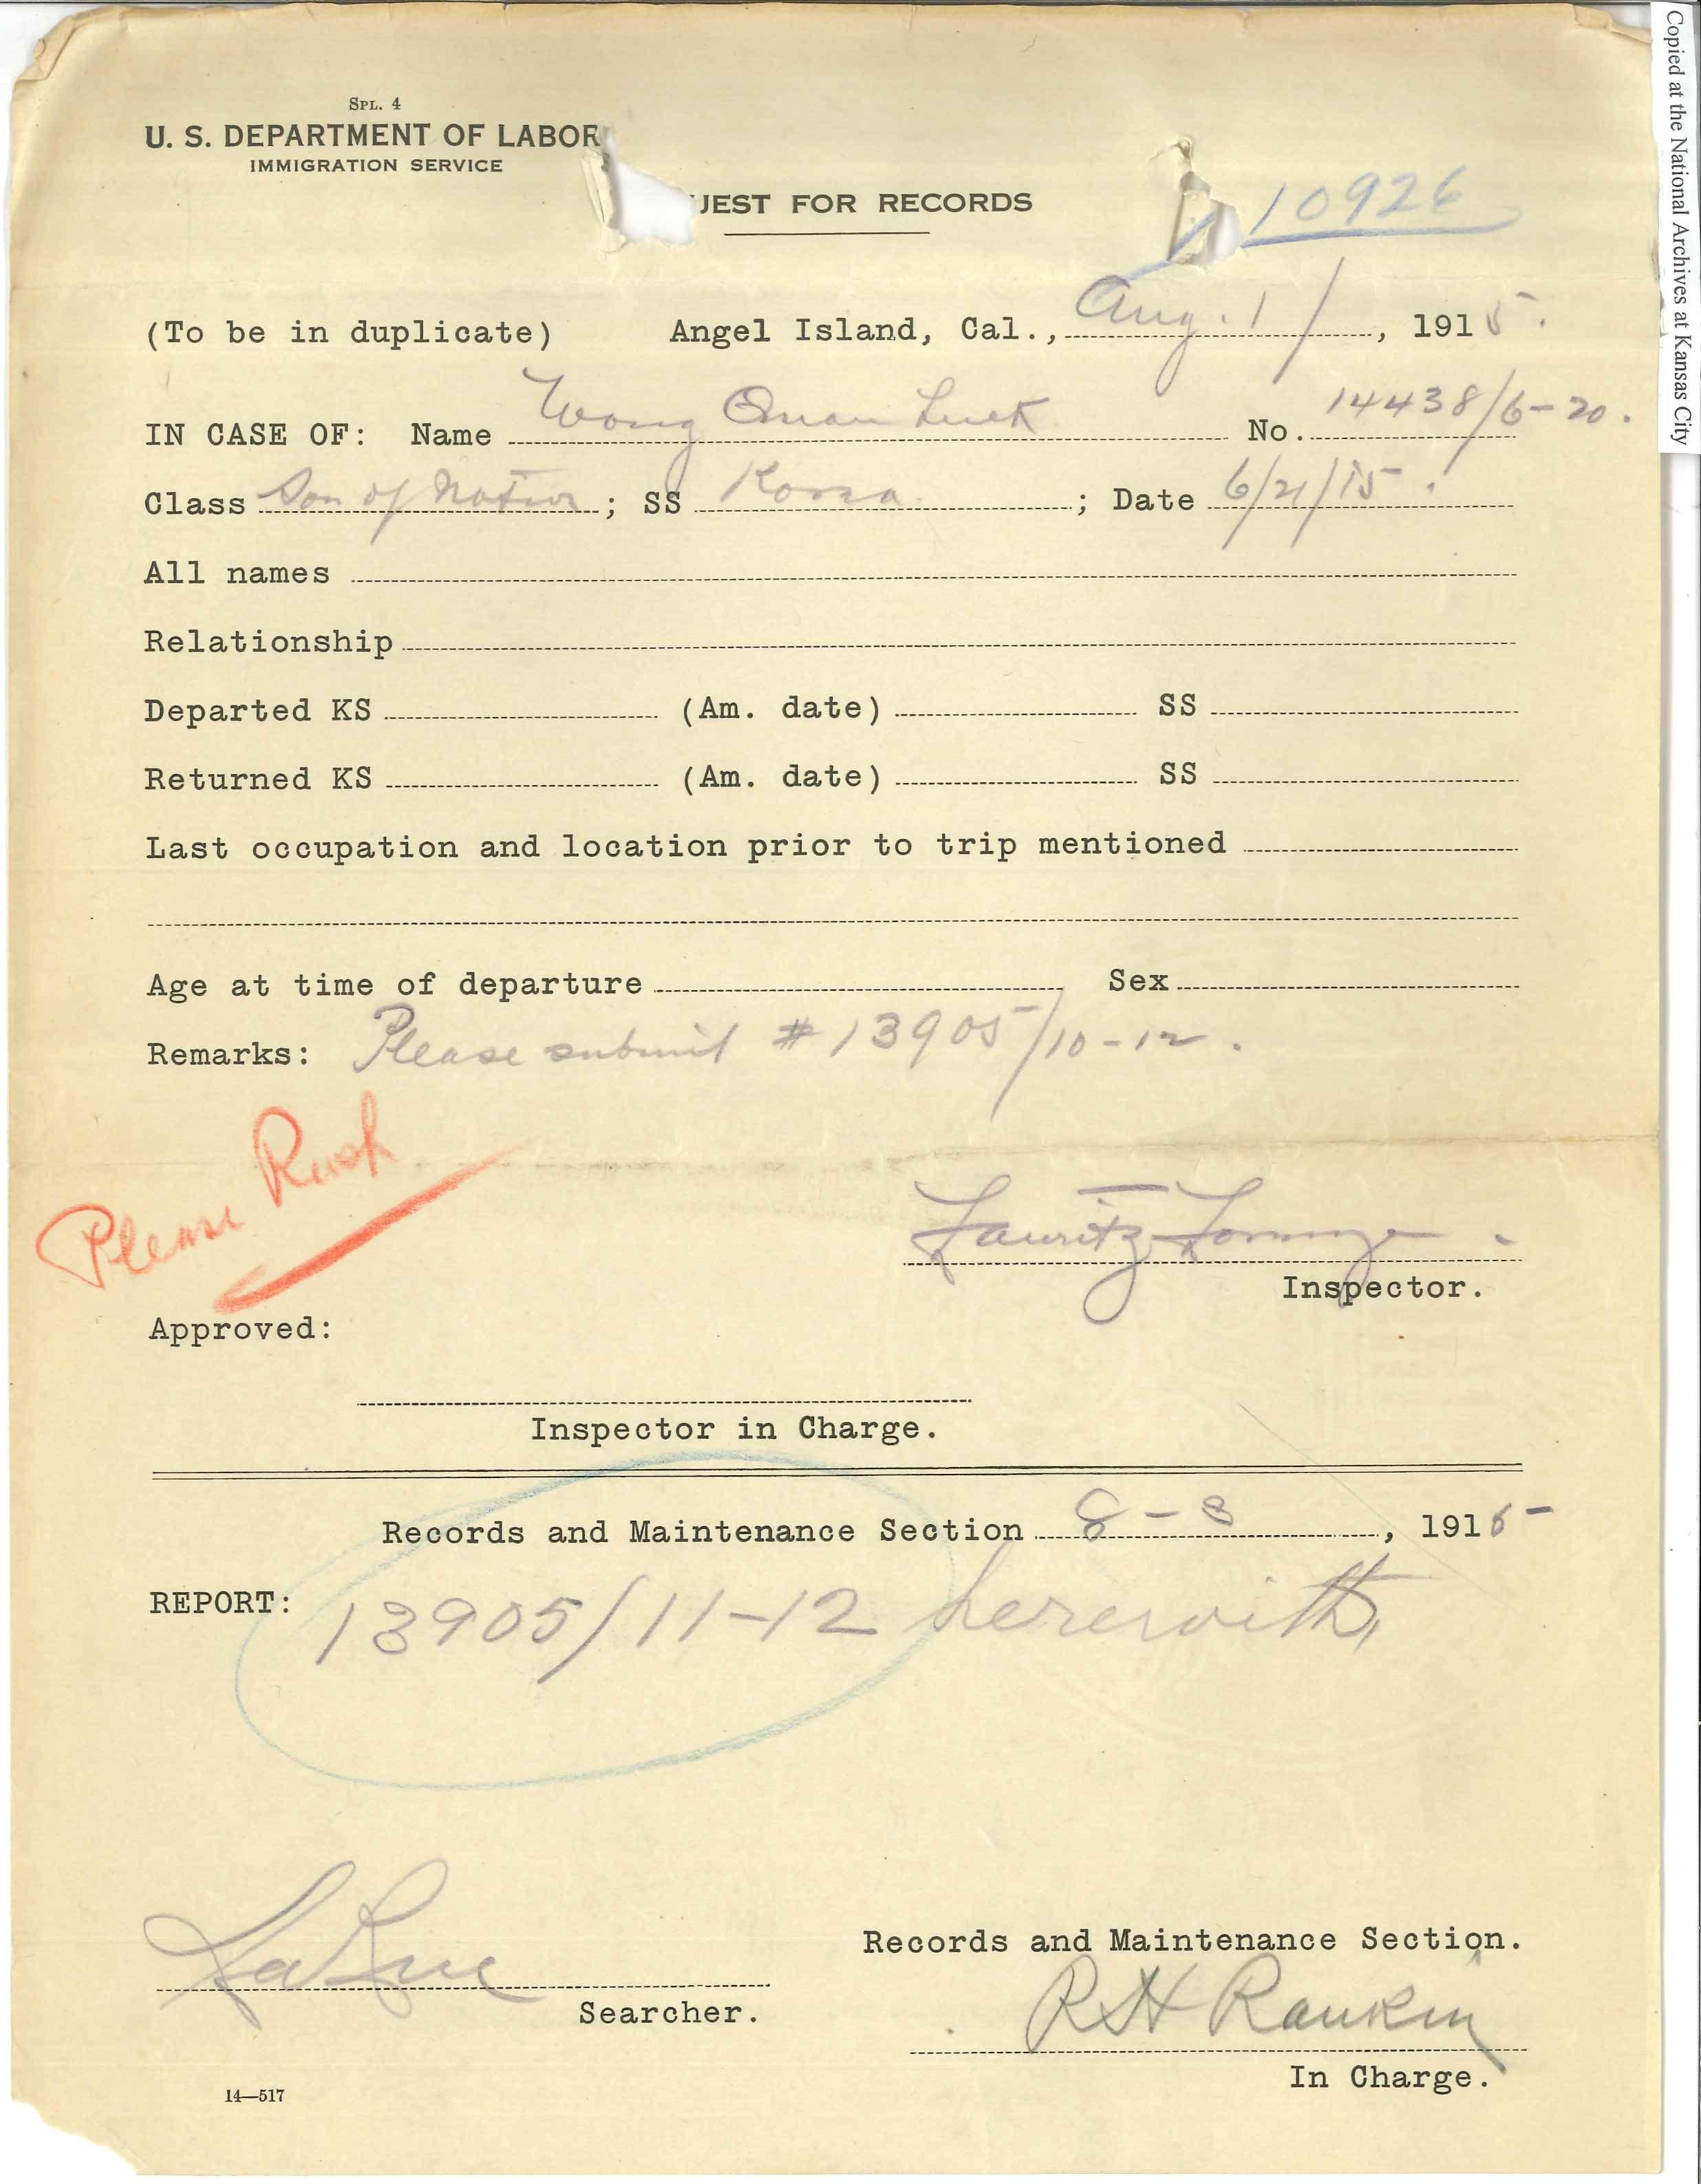 Copied at the National Archives at Kansas City
SPL. 4
U. S. DEPARTMENT OF LABOR
IMMIGRATION SERVICE
UEST FOR RECORDS
10926
(To be in duplicate) Angel Island, Cal., Aug. 1/, 1915.
IN CASE OF: Name Wong Quan Luck No. 14438/6-20.
Class Son of Native; SS Korea; Date 6/21/15.
All names
Relationship
Departed KS (Am. date) SS
Returned KS (Am. date) SS
Last occupation and location prior to trip mentioned
Age at time of departure Sex
Remarks: Please submit #13905/10-12.
Please Rush
Lauritz
Inspector.
Approved:
Inspector in Charge.
Records and Maintenance Section 8-3, 1915
REPORT: 13905/11-12 herewith,
LaRue
Searcher.
Records and Maintenance Section.
RH Rankin
In Charge.
14—517